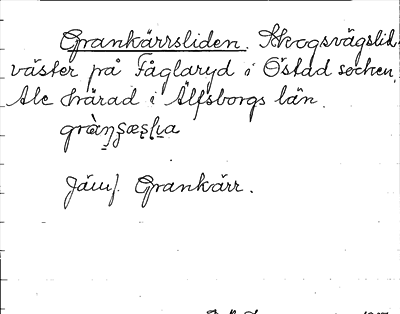 Grankärrsliden. Skogsvägslid
väster på Fåglaryd i Östad socken,
Ale härad i Älfsborgs län.
Jämf. Grankärr.